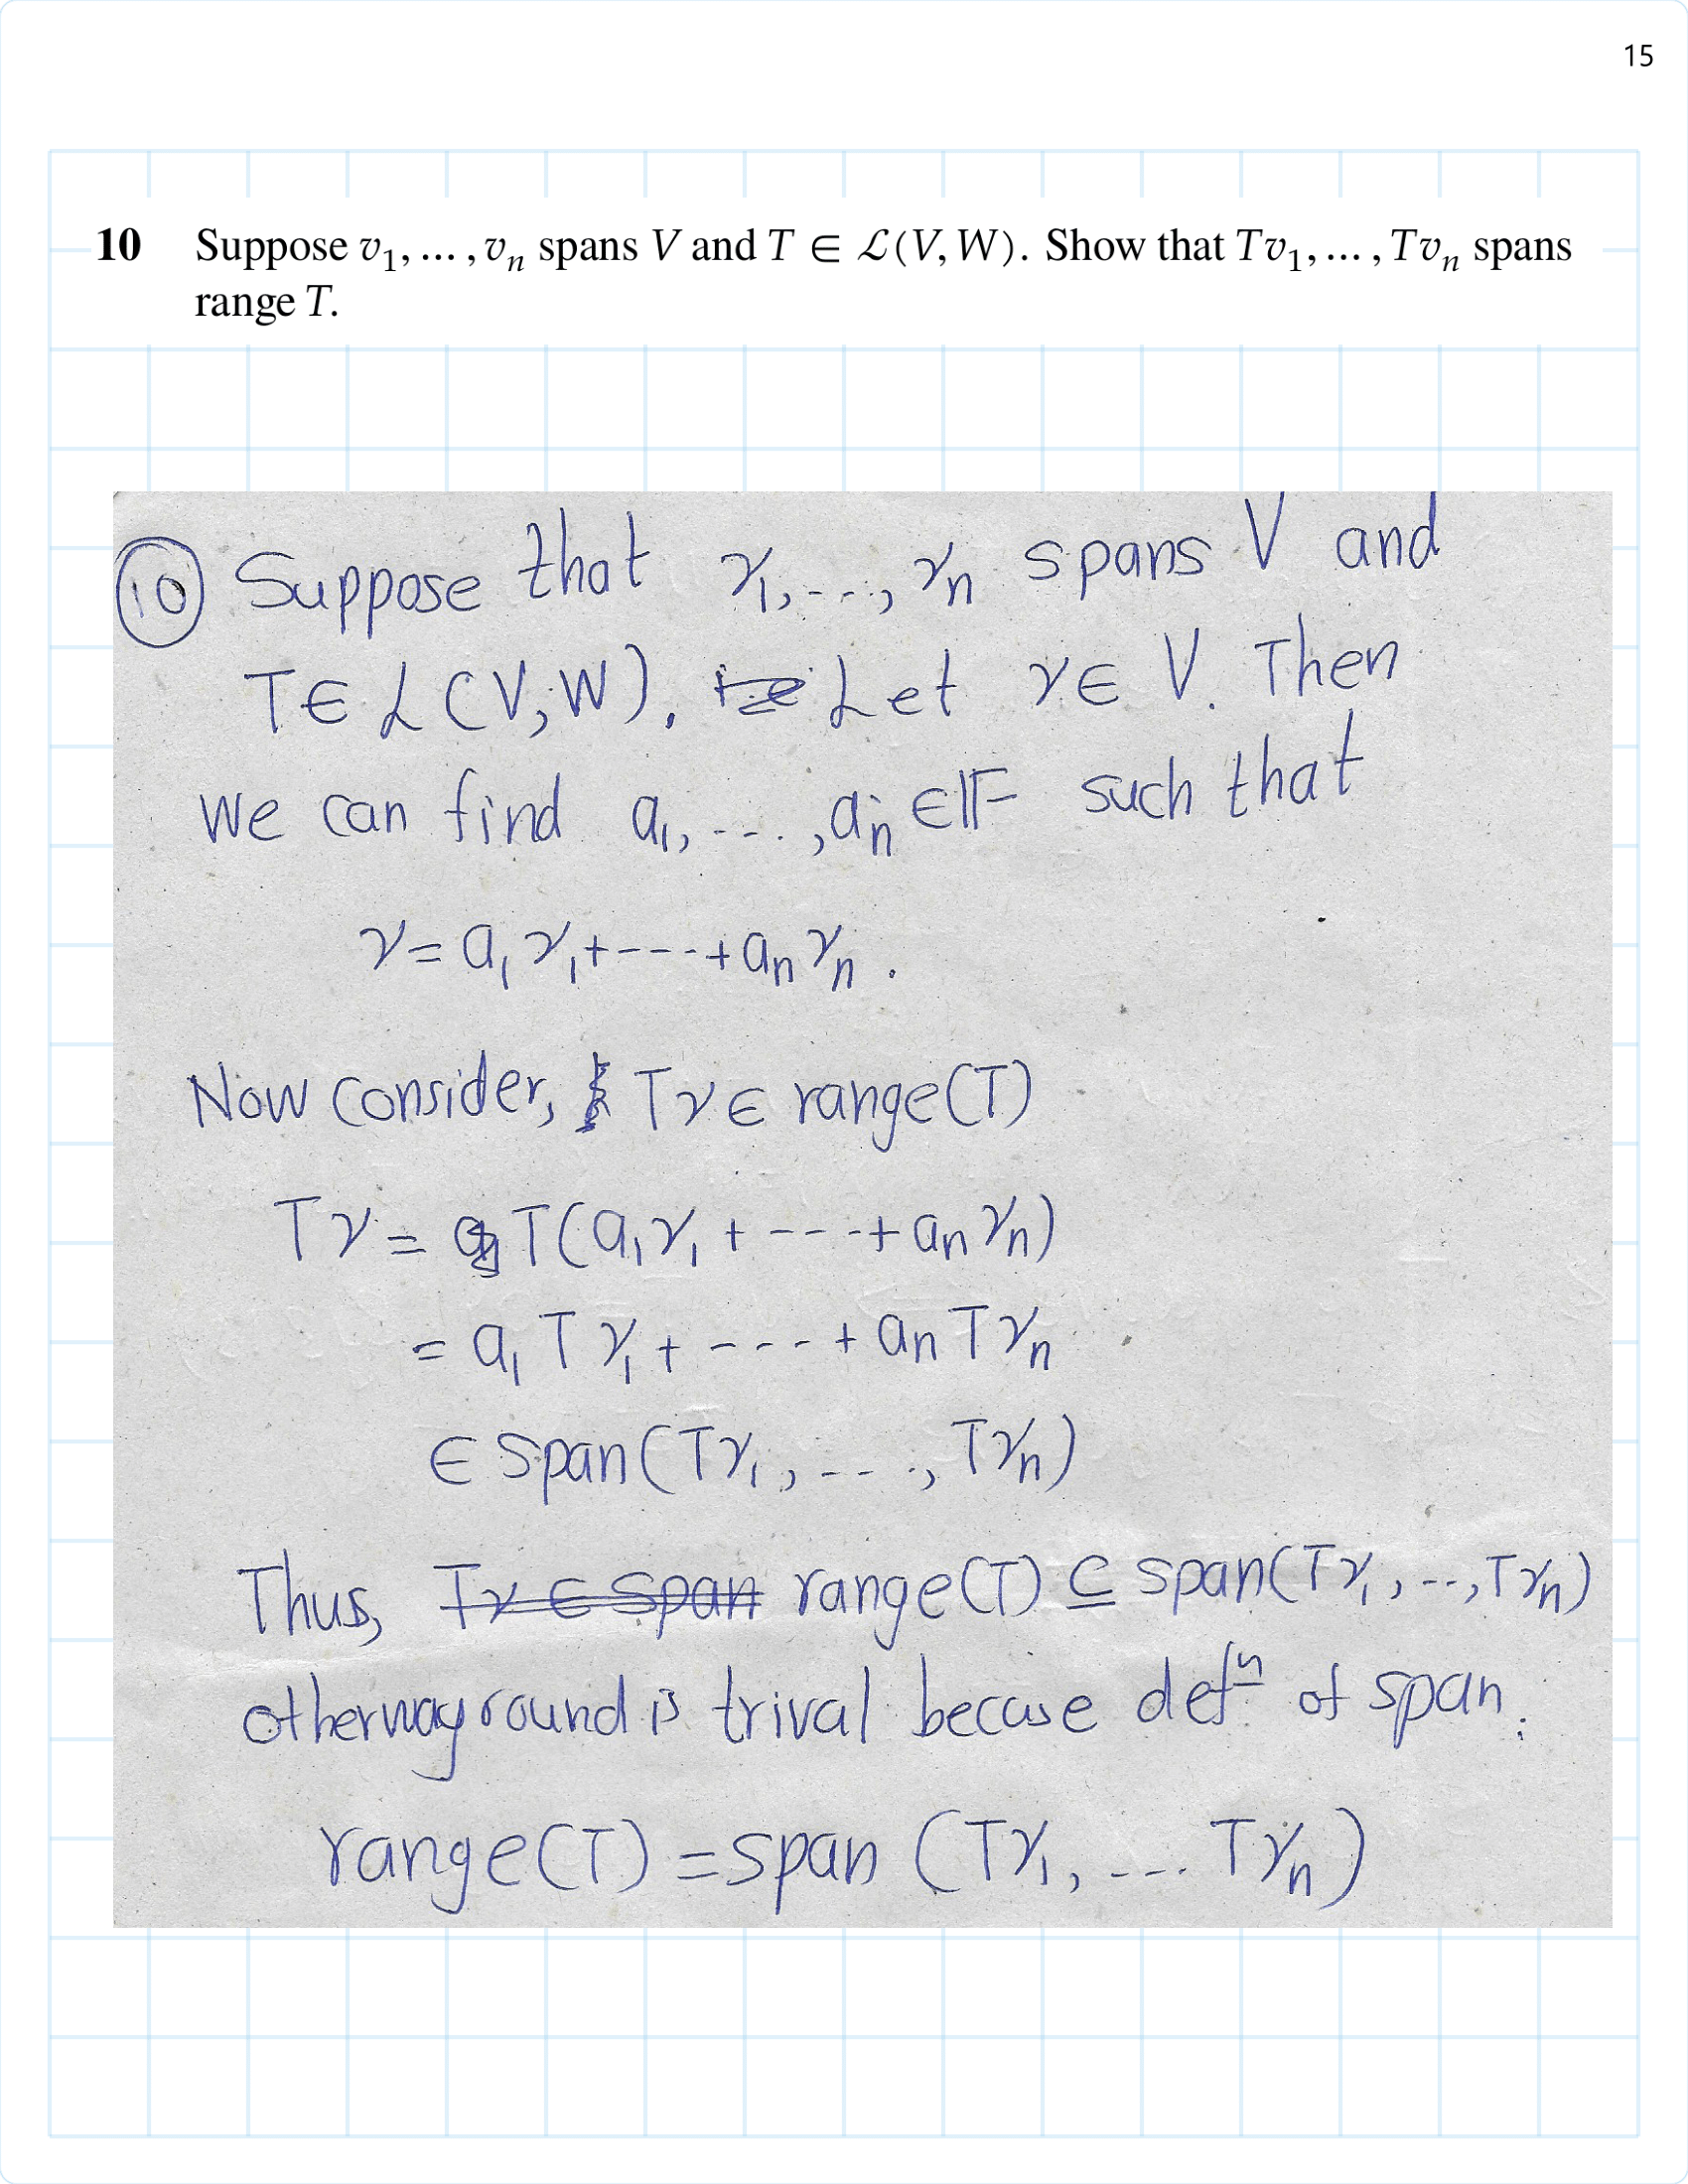 15
10 Suppose v₁, … , vₙ spans V and T ∈ ℒ(V, W). Show that Tv₁, … , Tvₙ spans
range T.
⑩ Suppose that v₁, ..., vₙ spans V and
T ∈ ℒ(V, W). Let v ∈ V. Then
we can find a₁, ..., aₙ ∈ 𝔽 such that
v = a₁v₁ + --- + aₙvₙ.
Now consider, Tv ∈ range(T)
Tv = T(a₁v₁ + --- + aₙvₙ)
= a₁Tv₁ + --- + aₙTvₙ
∈ span(Tv₁, ..., Tvₙ)
Thus, T̶v̶ ̶∈̶ ̶s̶p̶a̶n̶ range(T) ⊆ span(Tv₁, .., Tvₙ)
otherway round is trival becuse defⁿ of span.
range(T) = span (Tv₁, ... Tvₙ)